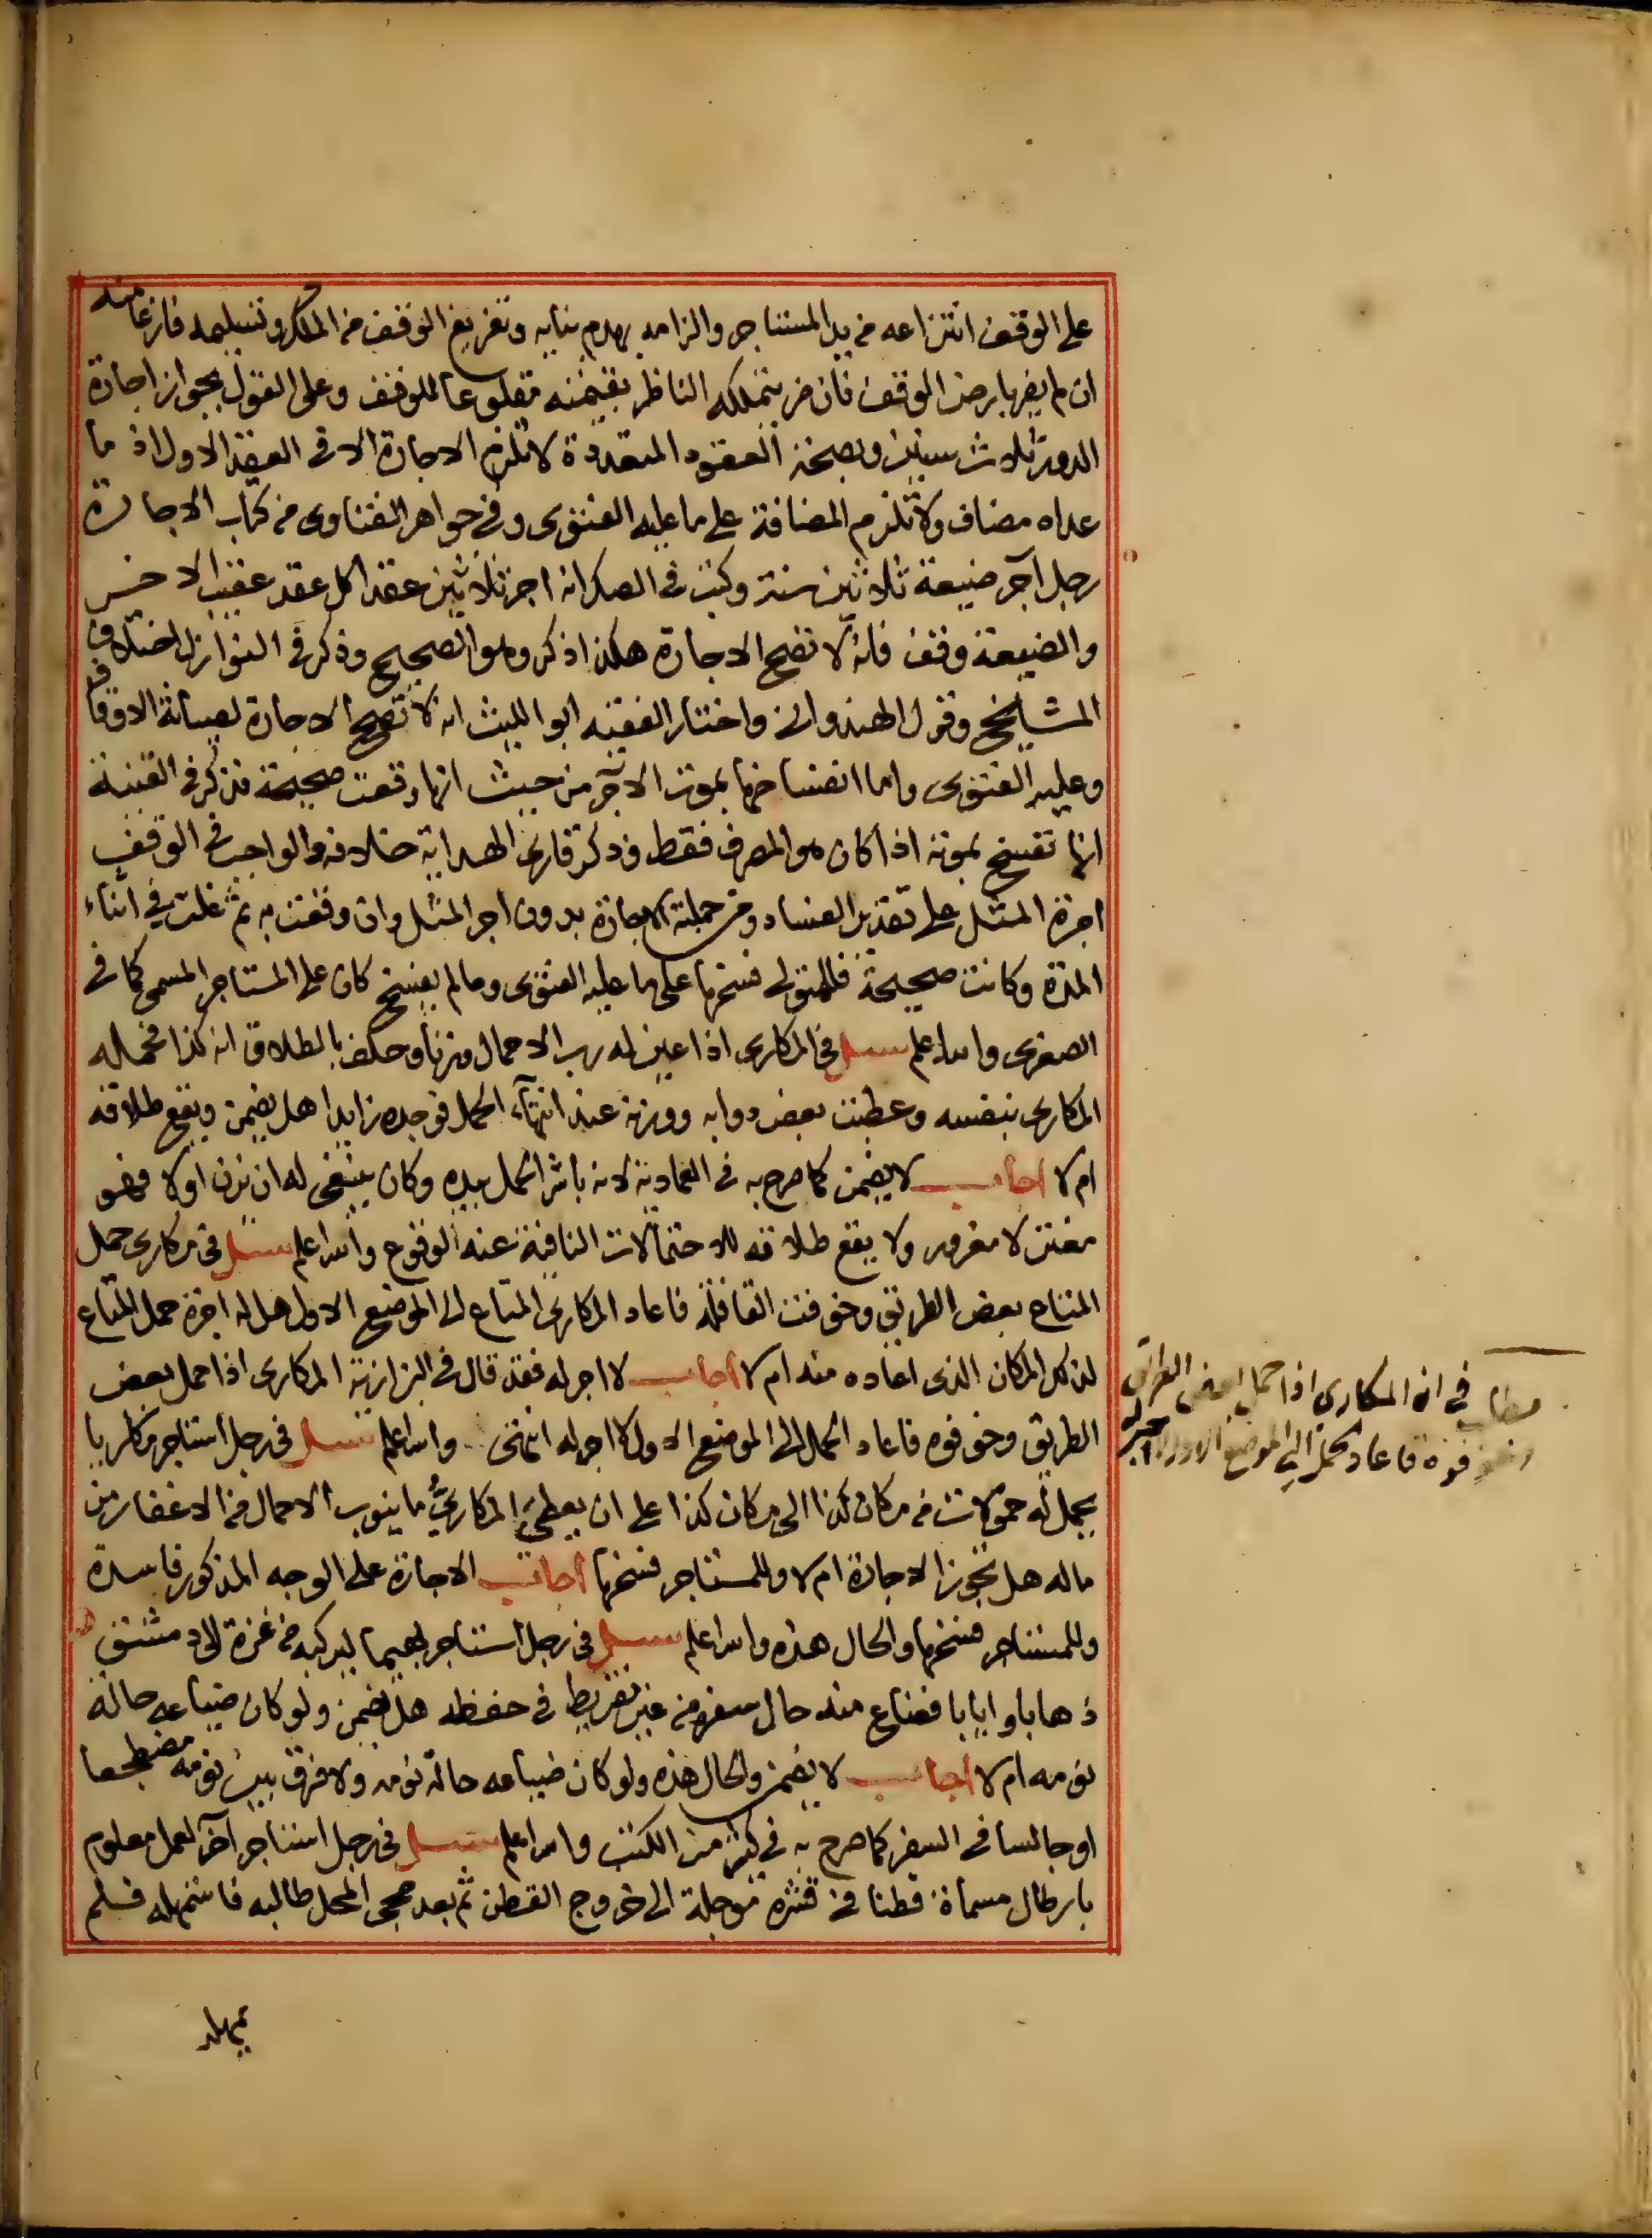 على الوقف انتزاعه من يد المستاجر والزامه بهدم بنايه وتفريغ الوقف من الملك وتسليمه فارغا منه
ان لم يضر بارض الوقف فان ضر يتملكه الناظر بقيمته مقلوعا للوقف وعلى القول بجواز اجارة
الدور ثلاث سنين وبصحة العقود المتعددة لا تلزم الاجارة الا في العقد الاول اذ ما
عداه مضاف ولا تلزم المضافة على ما عليه الفتوى وفي جواهر الفتاوى من كتاب الاجارة
رجل آجر ضيعة ثلاثين سنة وكتب في الصك انه اجر ثلاثين عقدا كل عقد عقيب الاخر
والضيعة وقف فانه لا تصح الاجارة هكذا ذكر وهو الصحيح وذكر في النوازل اختلاف
المشايخ وقول الهندواني واختار الفقيه ابو الليث انه لا تصح الاجارة لصيانة الاوقاف
وعليه الفتوى واما انفساخها بموت الآجر من حيث انها وقعت صحيحة فذكر في القنية
انها تفسخ بموته اذا كان هو المصرف فقط وذكر قارئ الهداية خلافه والواجب في الوقف
اجرة المثل على تقدير الفساد ومن جملته الاجارة بدون اجر المثل وان وقعت به ثم غلت في اثناء
المدة وكانت صحيحة فللمتولي فسخها على ما عليه الفتوى وما لم يفسخ كان على المستاجر المسمى كما في
الصغرى والله اعلم سئل في المكاري اذا عين له رب الاحمال وزنا وحلف بالطلاق انه كذا فحمله
المكاري بنفسه وعطبت بعض دوابه ووزنه عند انتهاء الحمل فوجده زايدا هل يضمن ويقع طلاقه
ام لا اجاب لا يضمن كما صرح به في العمادية لانه باشر الحمل بيده وكان ينبغي له ان يزن اولا فهو
مغتر لا مغرور ولا يقع طلاقه للاحتمالات النافية عنه الوقوع والله اعلم سئل في مكاري حمل
المتاع بعض الطريق وخوفت القافلة فاعاد المكاري المتاع الى الموضع الاول هل له اجرة حمل المتاع
لذلك المكان الذي اعاده منه ام لا اجاب لا اجر له فقد قال في البزازية المكاري اذا حمل بعض
الطريق وخوفوه فاعاد الحمل الى الموضع الاول لا اجر له انتهى والله اعلم سئل في رجل استاجر مكاريا
يحمل له حمولات من مكان كذا الى مكان كذا على ان يعطي المكاري ما ينوب الاحمال من الاغفار من
ماله هل تجوز الاجارة ام لا وللمستاجر فسخها اجاب الاجارة على الوجه المذكور فاسدة
وللمستاجر فسخها والحال هذه والله اعلم سئل في رجل استاجر بهيما ليركبه من غزة الى دمشق
ذهابا وايابا فضاع منه حال سفره من غير تفريط في حفظه هل يضمن ولو كان ضياعه حالة
نومه ام لا اجاب لا يضمن والحال هذه ولو كان ضياعه حالة نومه ولا فرق بين نومه مضطجعا
او جالسا في السفر كما صرح به في كثير من الكتب والله اعلم سئل في رجل استاجر آخر لعمل معلوم
بارطال مسماة قطنا في قشره موجلة الى خروج القطن ثم بعد مجيء المحل طالبه فاستمهله فلم
يمهله
مطلب في ان المكاري اذا حمل بعض الطريق
وخوفوه فاعاد الحمل الى الموضع الاول لا اجر له